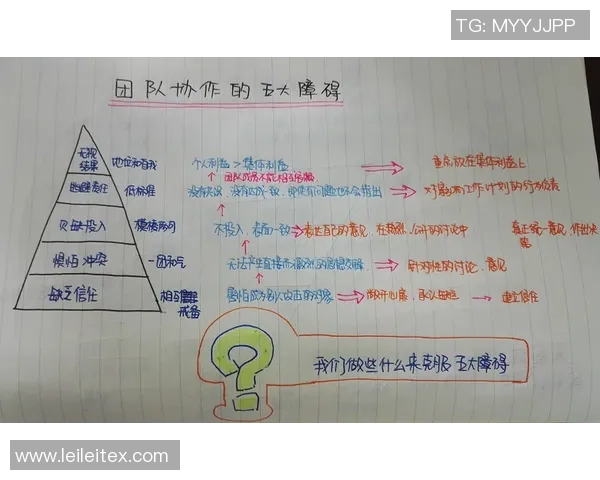 TG: MYYJJPP
团队协作的五大障碍
无视结果 地位和自我 个人利益 > 集体利益 重点放在集体利益上
团队成员不能相互
逃避责任 低标准 没有共识，没有达成一致，即使有问题也不会指出 对影响工作计划的行为负责
欠缺投入 模棱两可 不投入，表面一致 表达自己的意见，在激烈、公开的讨论中 真正统一意见，作出决策
惧怕冲突 一团和气 无法产生直接而激烈的思想交锋 针对性的讨论、意见
缺乏信任 相互戒备 害怕成为别人攻击的对象 敞开心扉，承认缺陷 建立信任
我们做些什么来克服五大障碍
www.leileitex.com